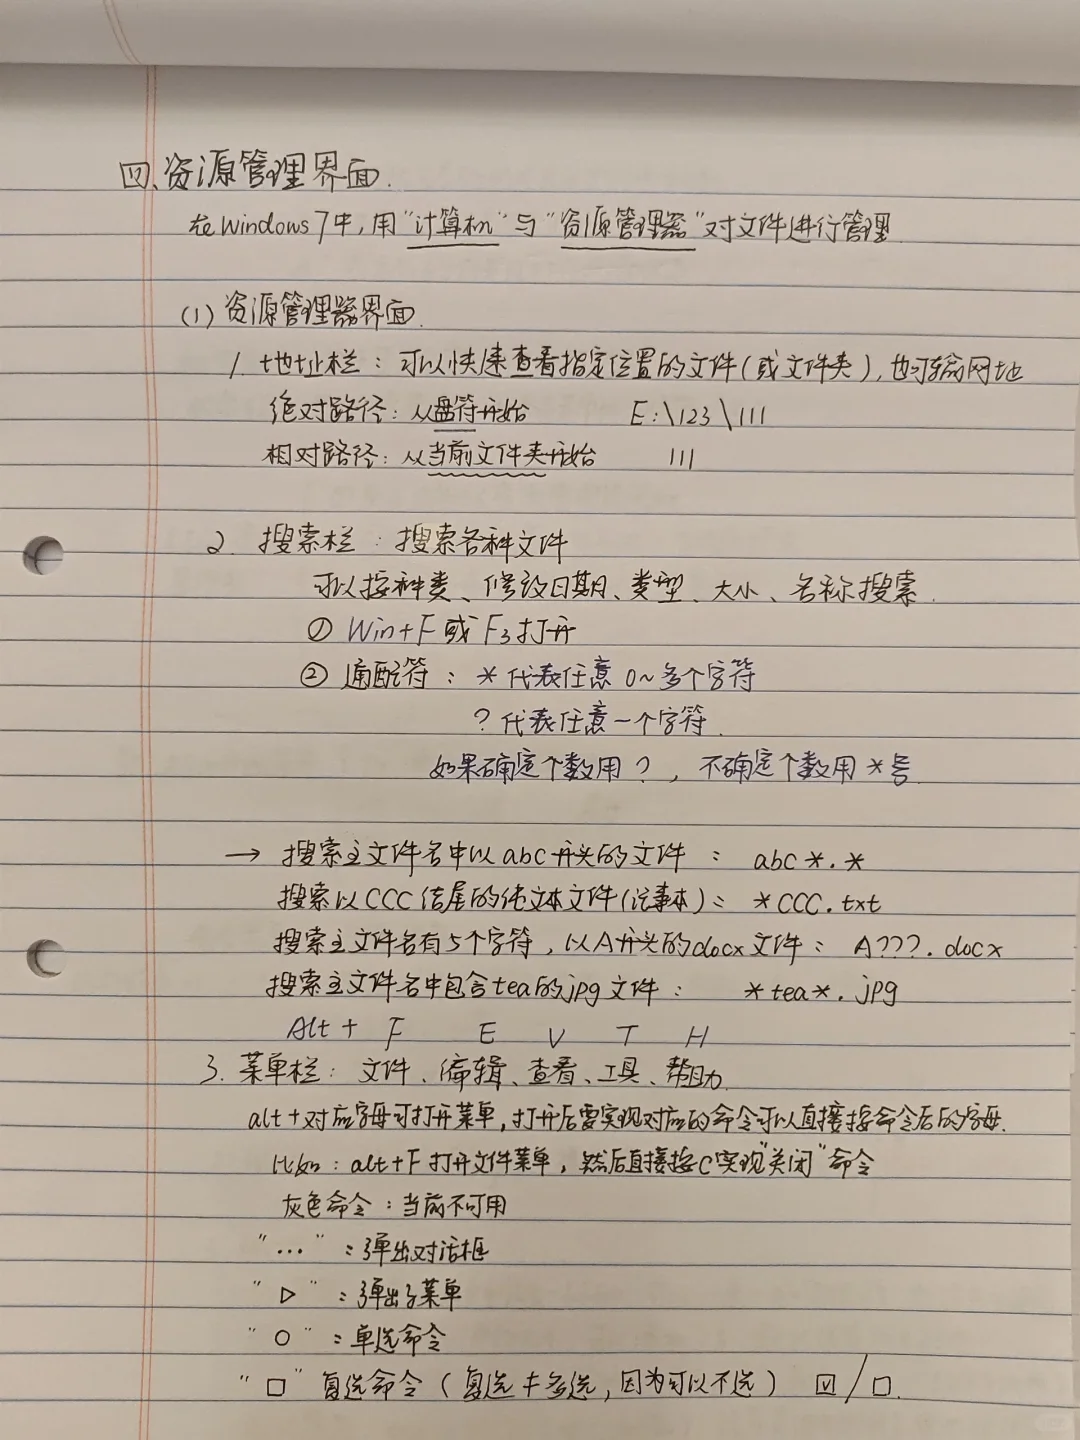 四、资源管理界面.
在Windows 7中,用"计算机"与"资源管理器"对文件进行管理
(1) 资源管理器界面.
1. 地址栏：可以快速查看指定位置的文件(或文件夹),也可输网地
绝对路径：从盘符开始 E:\123\111
相对路径：从当前文件夹开始 111
2. 搜索栏：搜索各种文件
可以按种类、修改日期、类型、大小、名称搜索.
① Win+F 或 F3打开
② 通配符：* 代表任意 0~多个字符
? 代表任意一个字符.
如果确定个数用 ? , 不确定个数用 * 号.
→ 搜索主文件名中以abc开头的文件： abc*.*
搜索以CCC结尾的纯文本文件(记事本)： *CCC.txt
搜索主文件名有5个字符,以A开头的docx文件： A???.docx
搜索主文件名中包含tea的jpg文件： *tea*.jpg
Alt + F E V T H
3. 菜单栏：文件、编辑、查看、工具、帮助.
alt+对应字母可打开菜单,打开后要实现对应的命令可以直接按命令后的字母.
比如：alt+F打开文件菜单,然后直接按C实现"关闭"命令
灰色命令：当前不可用
"…"：弹出对话框
"▷"：弹出子菜单
"○"：单选命令
"□" 复选命令(复选≠多选,因为可以不选) ☑/□.